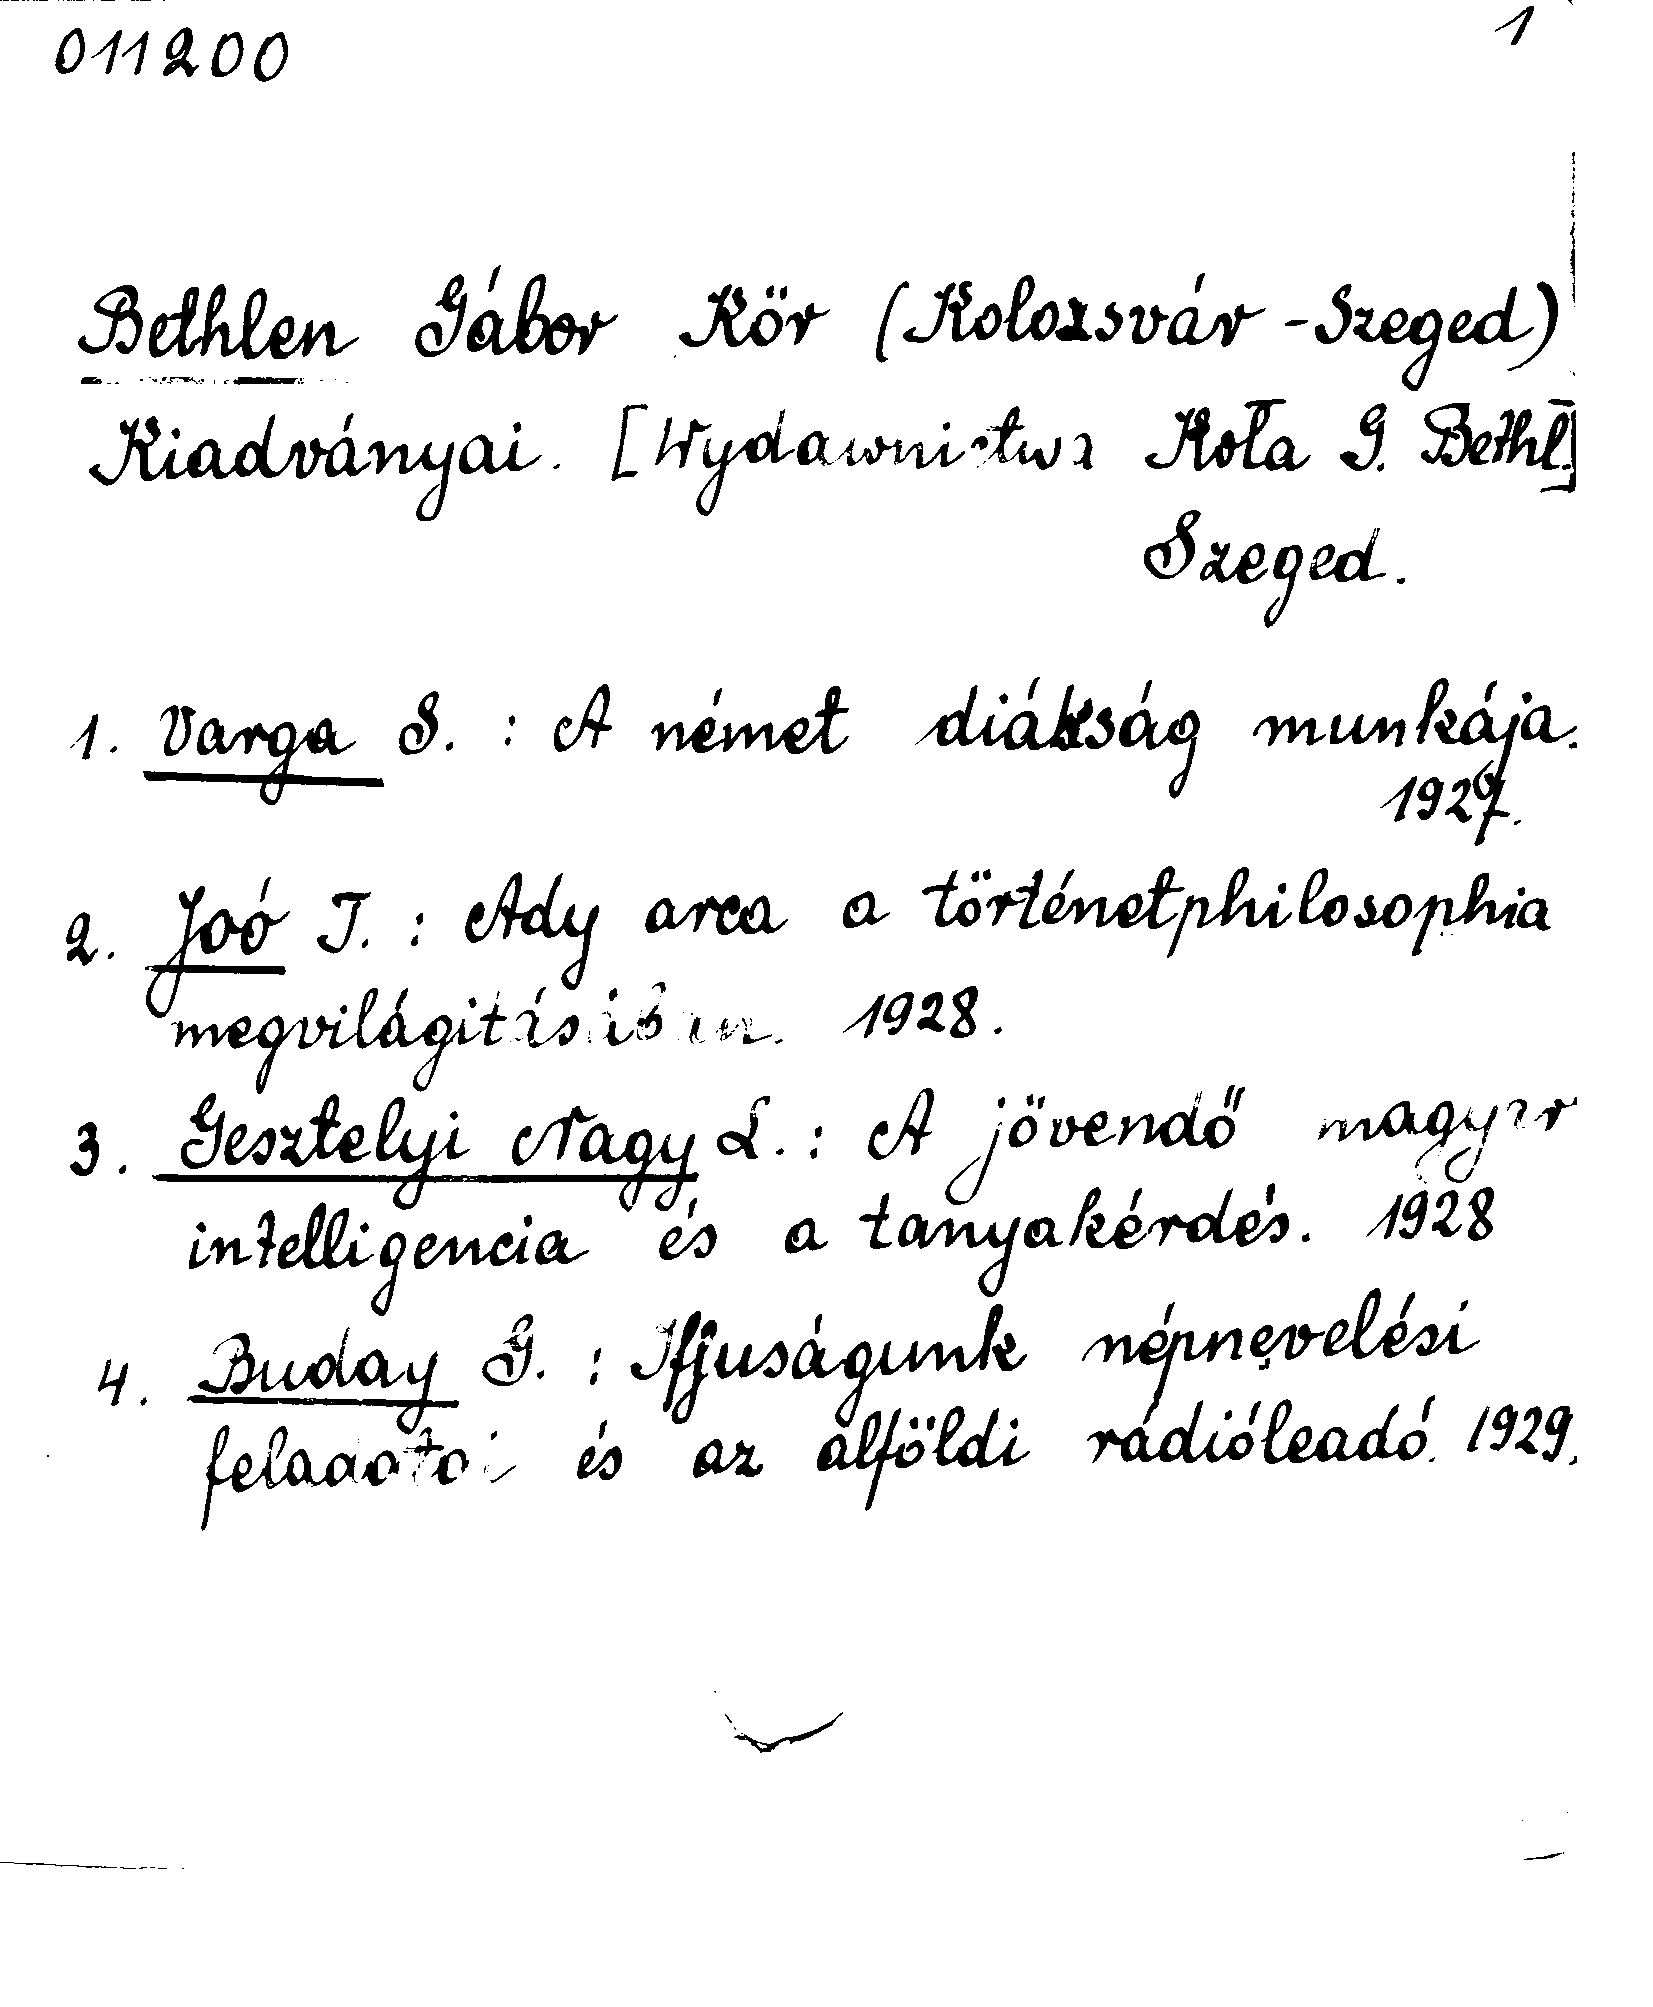 011200 1
Bethlen Gábor Kör (Kolozsvár - Szeged)
Kiadványai. [Wydawnictwa Koła G. Bethl.]
Szeged.
1. Varga S. : A német diákság munkája.
1927.
2. Joó T. : Ady arca a történetphilosophia
megvilágitásában. 1928.
3. Gesztelyi Nagy L. : A jövendő magyar
intelligencia és a tanyakérdés. 1928
4. Buday G. : Ifjuságunk népnevelési
feladatai és az alföldi rádióleadó. 1929.